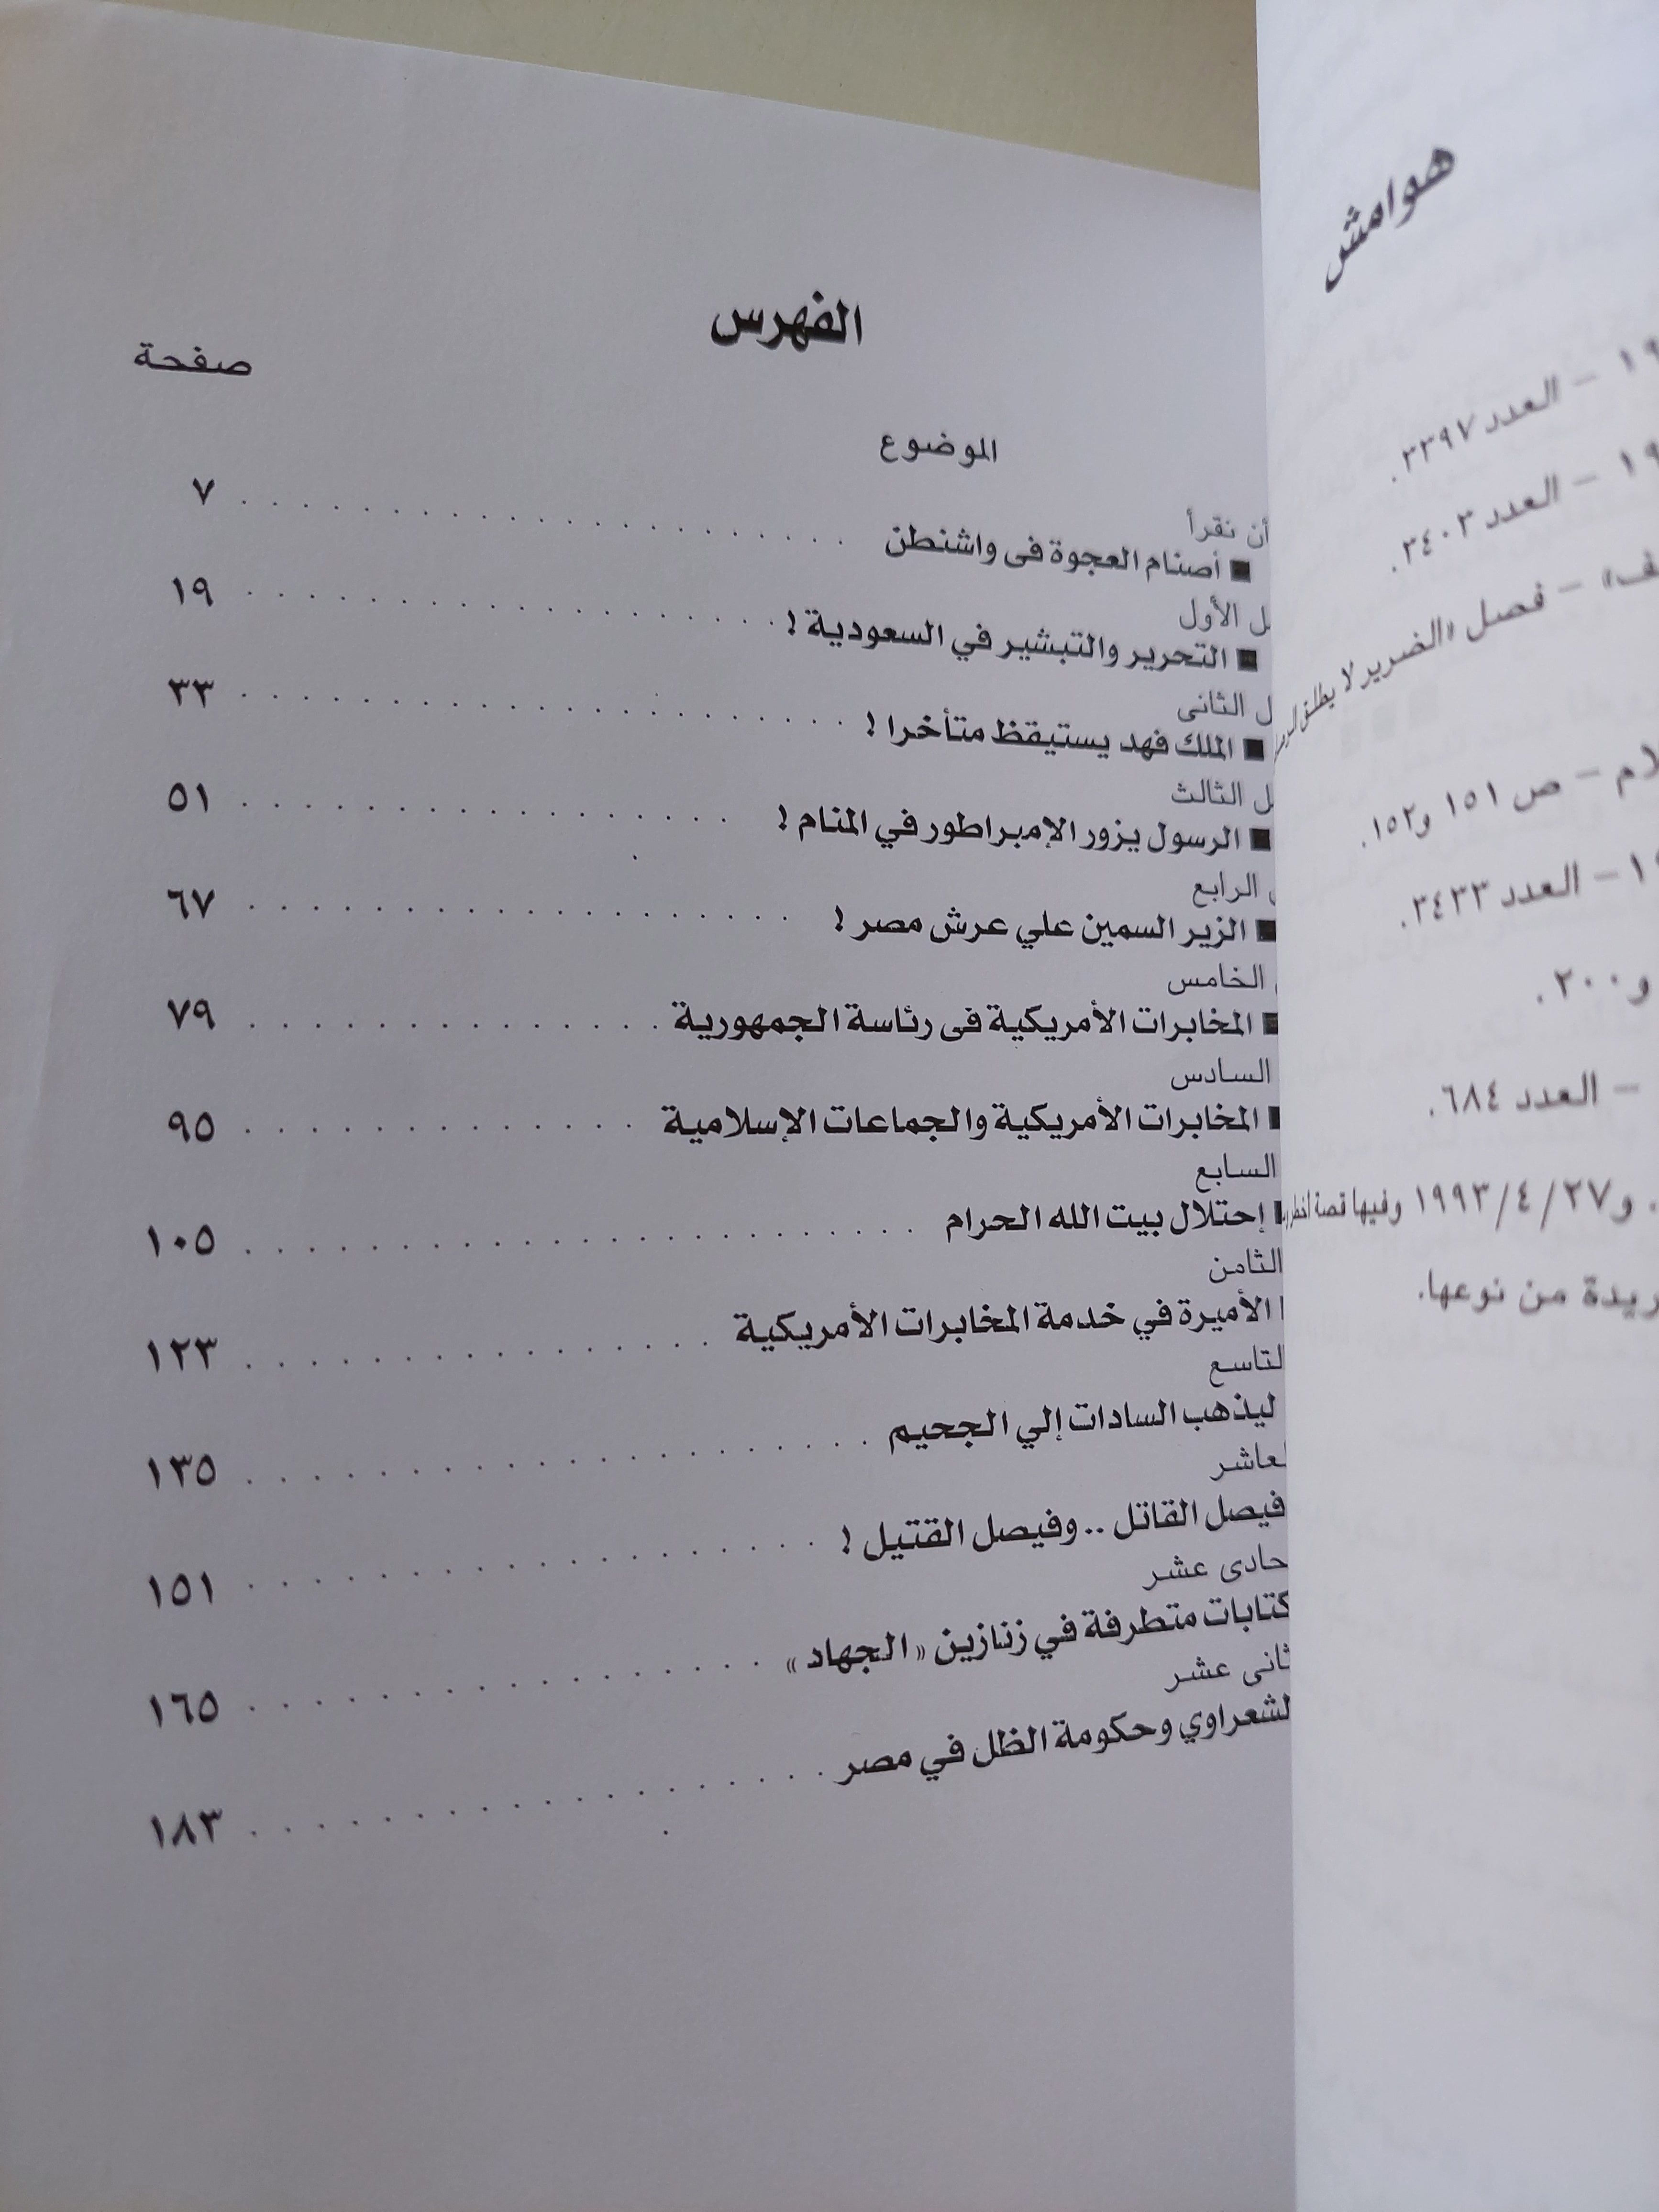 الفهرس
صفحة
الموضوع
أن نقرأ
■ أصنام العجوة فى واشنطن . . . . . . . . . . . . . . . . . . ٧
الأول
■ التحرير والتبشير في السعودية ! . . . . . . . . . . . . . . . ١٩
الثانى
■ الملك فهد يستيقظ متأخرا ! . . . . . . . . . . . . . . . . . ٣٣
الثالث
■ الرسول يزور الإمبراطور في المنام ! . . . . . . . . . . . . . . ٥١
الرابع
■ الزير السمين علي عرش مصر ! . . . . . . . . . . . . . . . . ٦٧
الخامس
■ المخابرات الأمريكية فى رئاسة الجمهورية . . . . . . . . . . . . ٧٩
السادس
■ المخابرات الأمريكية والجماعات الإسلامية . . . . . . . . . . . . ٩٥
السابع
■ إحتلال بيت الله الحرام . . . . . . . . . . . . . . . . . . . ١٠٥
الثامن
الأميرة في خدمة المخابرات الأمريكية . . . . . . . . . . . . . . ١٢٣
لتاسع
ليذهب السادات إلي الجحيم . . . . . . . . . . . . . . . . . . ١٣٥
لعاشر
فيصل القاتل .. وفيصل القتيل ! . . . . . . . . . . . . . . . . ١٥١
حادى عشر
كتابات متطرفة في زنازين «الجهاد» . . . . . . . . . . . . . . . ١٦٥
ثانى عشر
لشعراوي وحكومة الظل في مصر . . . . . . . . . . . . . . . . ١٨٣
هوامش
١٩ – العدد ٣٣٩٧.
١٩ – العدد ٣٤٠٢.
– فصل «الضرير لا يطلق
لام – ص ١٥١ و١٥٢.
– العدد ٣٤٣٣.
و٢٠٠.
– العدد ٦٨٤.
و٢٧/ ٤/ ١٩٩٣ وفيها قصة
ريدة من نوعها.